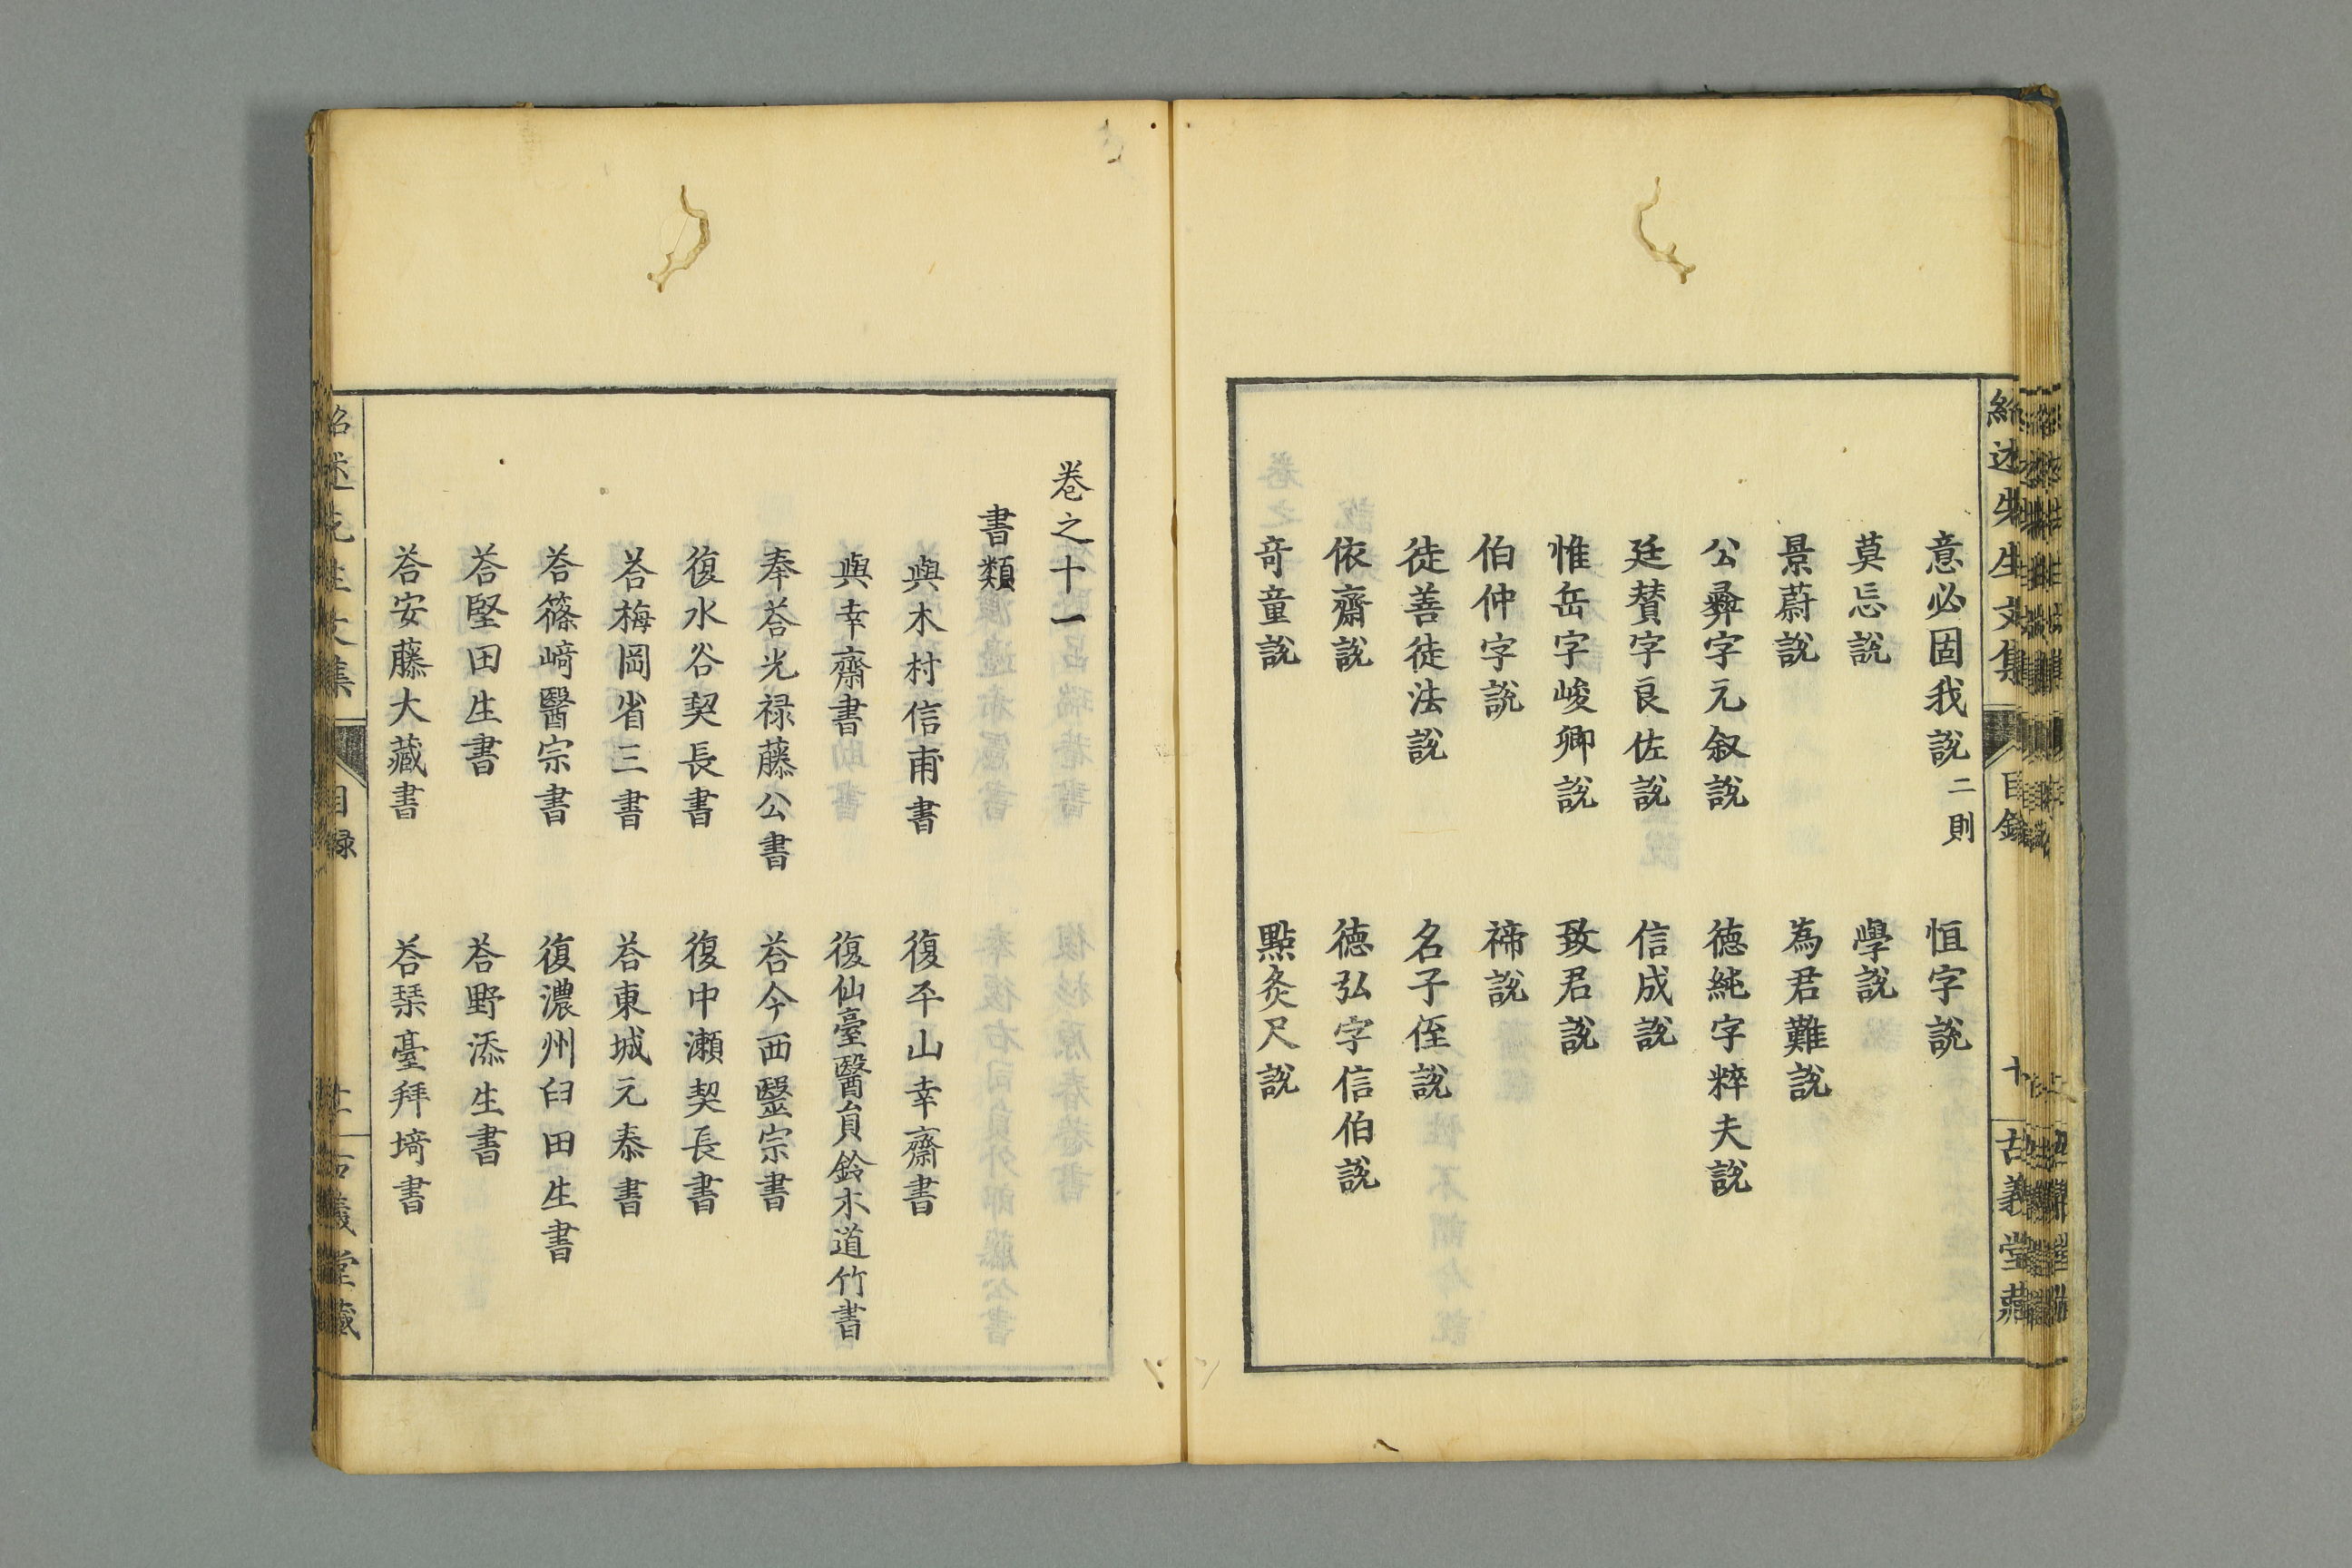 紹述先生文集 目錄 十 古義堂藏
意必固我說 二則 恒字說
莫忘說 學說
景蔚說 為君難說
公彝字元叙說 德純字粹夫說
廷賛字良佐說 信成說
惟岳字峻卿說 致君說
伯仲字說 禘說
徒善徒法說 名子侄說
依齋說 德弘字信伯說
奇童說 點灸尺說
卷之十一
書類
與木村信甫書 復平山幸齋書
與幸齋書 復仙臺醫員鈴木道竹書
奉荅光禄藤公書 荅今西毉宗書
復水谷契長書 復中瀬契長書
荅梅岡省三書 荅東城元泰書
荅篠﨑醫宗書 復濃州臼田生書
荅堅田生書 荅野添生書
荅安藤大藏書 荅琹臺拜埼書
紹述先生文集 目録 古義堂藏